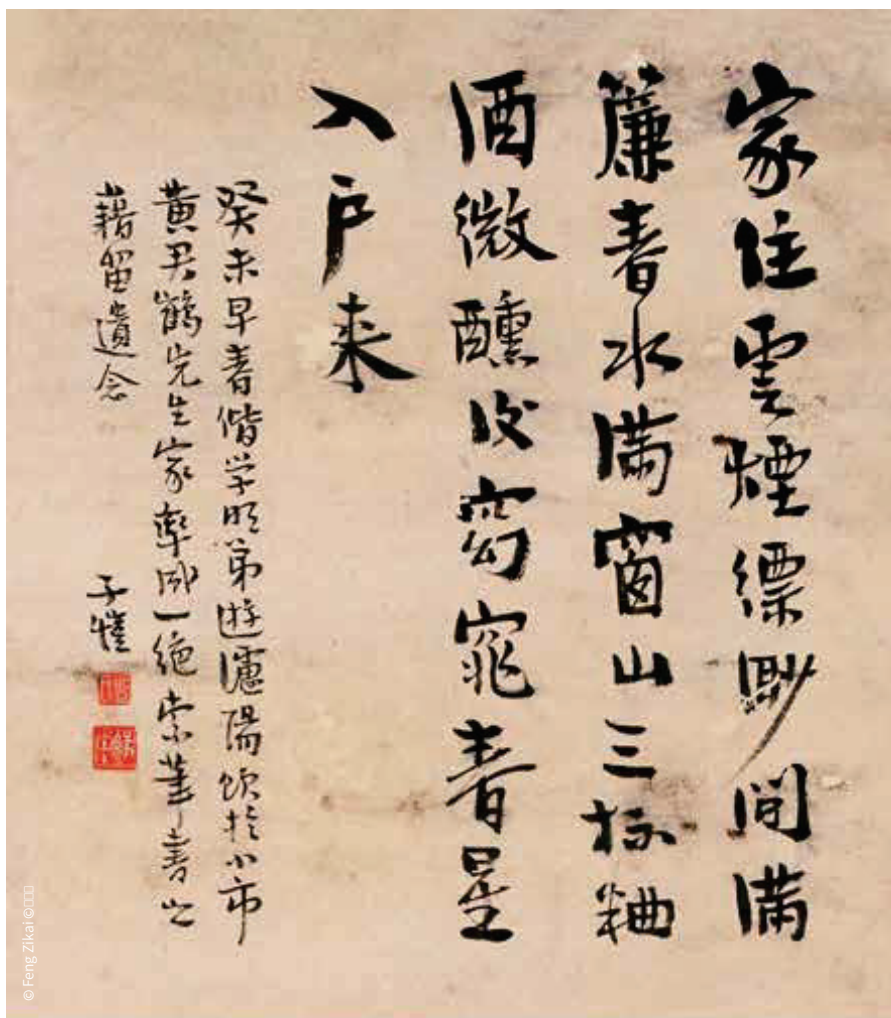 家住雲煙縹缈間満
簾春水満窗山三杯
酒微醺後窈窕春星
入户来
癸未早春偕学明弟遊瀘陽飲於小市
黄君鶴先生家率成一絶索筆書此
藉留遺念
子愷
© Feng Zikai ©